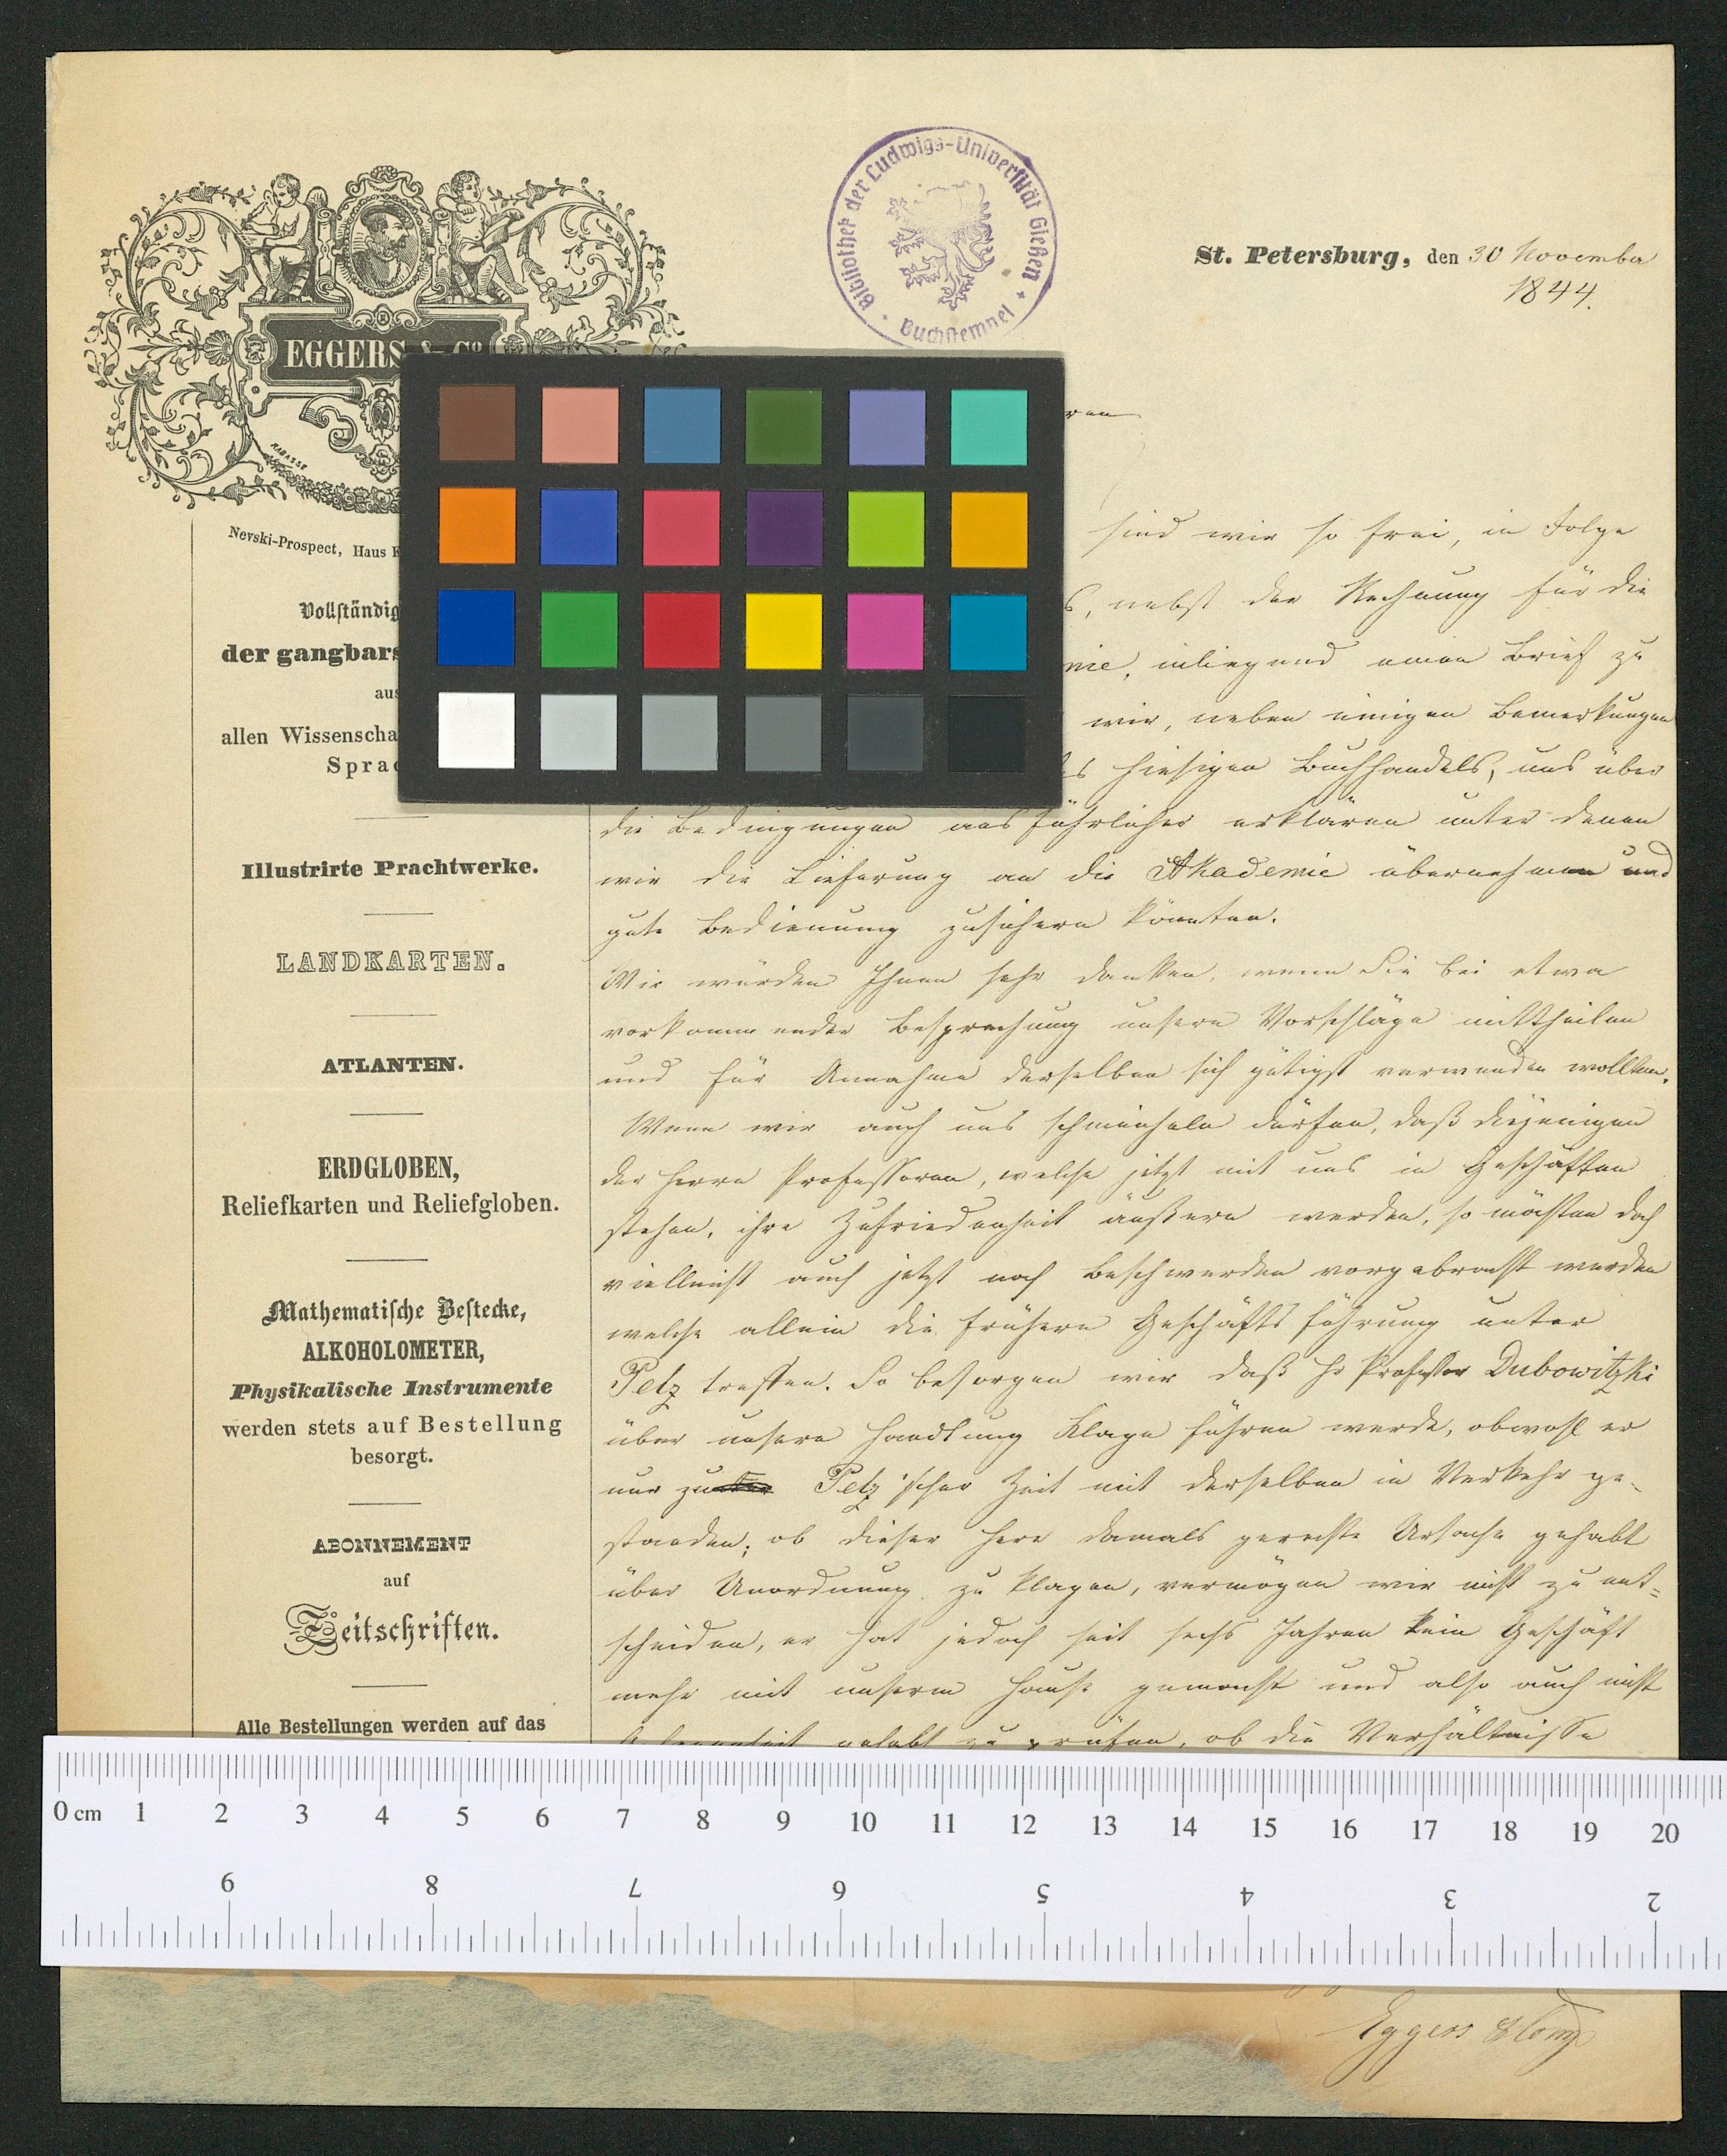 Bibliothek der Ludwigs-Universität Gießen
Buchstempel
EGGERS & Co
KABASSE
St. Petersburg, den 30 November
1844.
Nevski-Prospect, Haus
Vollständig
der gangbars
aus
allen Wissenscha
Sprac
Illustrirte Prachtwerke.
LANDKARTEN.
ATLANTEN.
ERDGLOBEN,
Reliefkarten und Reliefgloben.
Mathematische Bestecke,
ALKOHOLOMETER,
Physikalische Instrumente
werden stets auf Bestellung
besorgt.
ABONNEMENT
auf
Zeitschriften.
Alle Bestellungen werden auf das
sind wir so frei, in Folge
s, nebst der Rechnung für die
mie, inliegend einen Brief zu
wir, neben einigen Bemerkungen
es hiesigen Buchhandels, uns über
die Bedingungen ausführlicher erklären unter denen
wir die Lieferung an die Akademie übernehmen und
gute Bedienung zusichern könnten.
Wir würden Ihnen sehr danken, wenn Sie bei etwa
vorkommender Besprechung unsere Vorschläge mittheilen
und für Annahme derselben sich gütigst verwenden wollten.
Wenn wir auch uns schmeicheln dürfen, daß diejenigen
der Herrn Professoren, welche jetzt mit uns in Geschäften
stehen, ihre Zufriedenheit äußern werden, so möchten doch
vielleicht auch jetzt noch Beschwerden vorgebracht werden
welche allein die frühere Geschäftsführung unter
Pelz treffen. So besorgen wir daß Hr Professor Dubowitzki
über unsere Handlung Klage führen werde, obwohl er
nur zu Pelz'scher Zeit mit derselben in Verkehr ge-
standen; ob dieser Herr damals gerechte Ursache gehabt
über Unordnung zu klagen, vermögen wir nicht zu ent=
scheiden, er hat jedoch seit sechs Jahren kein Geschäft
mehr mit unserm Hause gemacht und also auch nicht
Gelegenheit gehabt zu prüfen, ob die Verhältnisse
0 cm 1 2 3 4 5 6 7 8 9 10 11 12 13 14 15 16 17 18 19 20
9 8 7 6 5 4 3 2
Eggers & Comp